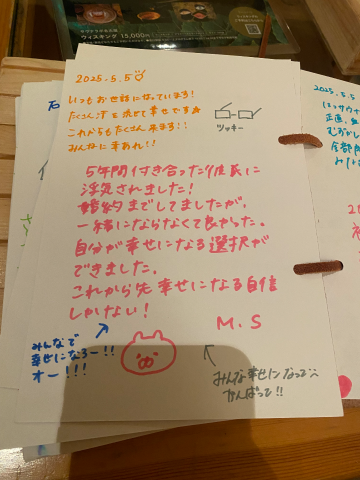 ウィスキング 15,000円
2025.5.5
いつもお世話になっています!
たくさん汗を流せて幸せです
これからもたくさん来ます!!
みんなに幸あれ!!
ツッキー
5年間付き合った彼氏に
浮気されました!
婚約までしてましたが、
一緒にならなくて良かった。
自分が幸せになる選択が
できました。
これから先幸せになる自信
しかない!
M.S
みんなで
幸せになろー!!
オー!!!
みんな幸せになって
がんばって!!
2025.5.